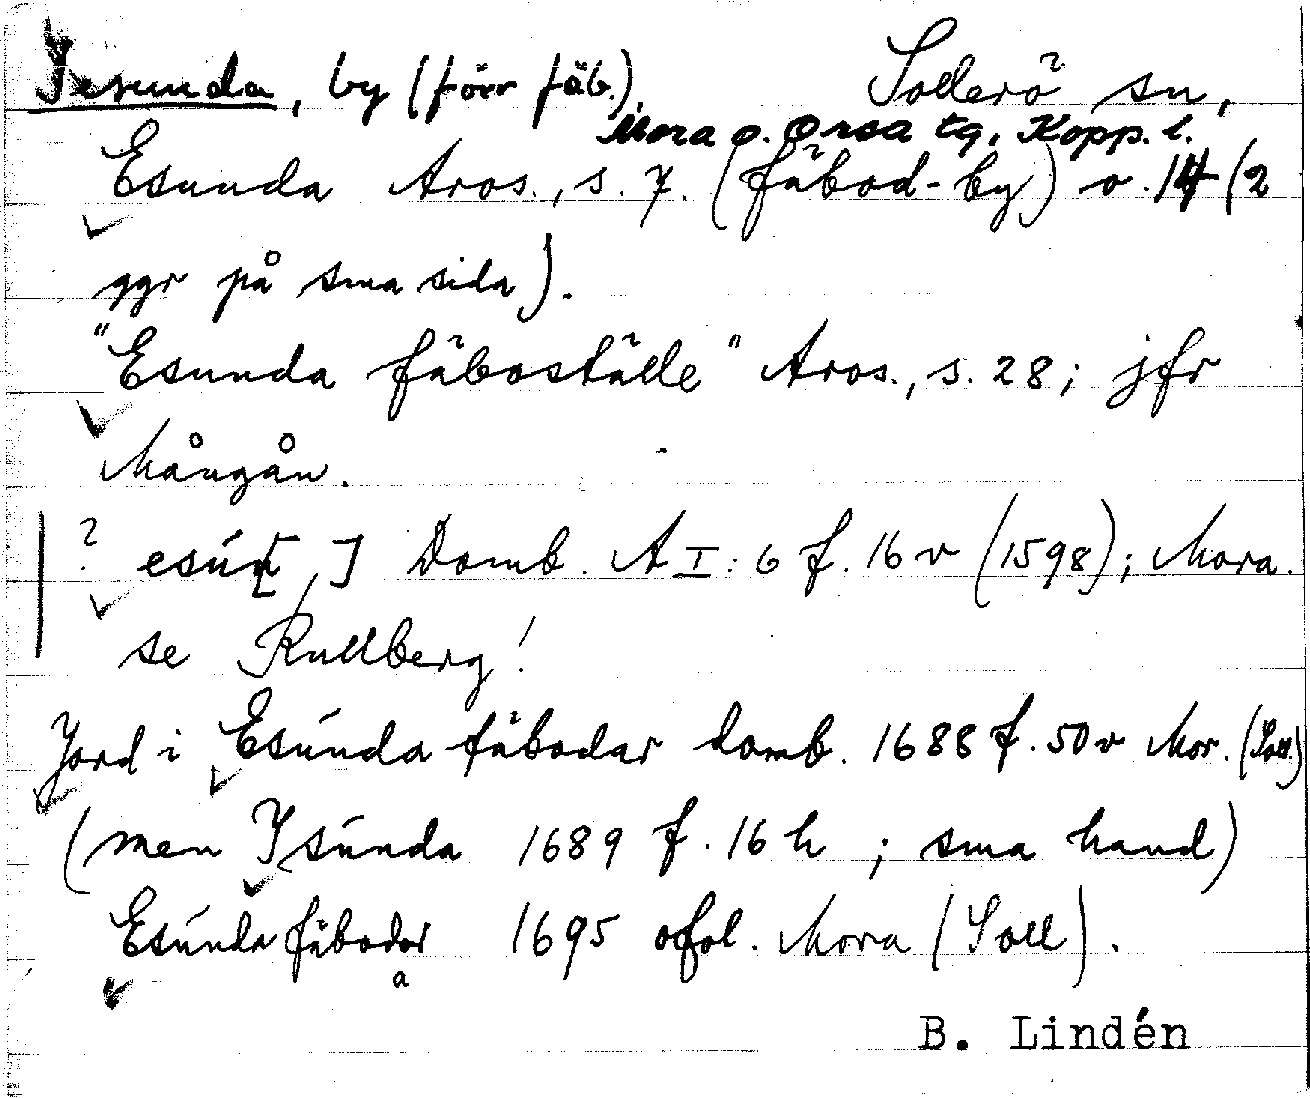 Isunda, by (förr fäb.), Sollerö sn,
Mora o. Orsa tg, Kopp. l.
Esunda Aros., s. 7. (fäbod-by) o. 14 (2
ggr på sma sida).
"Esunda fäboställe" Aros., s. 28; jfr
Mångån.
? esún[ ] Domb. A I: 6 f. 16 v (1598); Mora.
se Rullberg!
Jord i Esúnda fäbodar domb. 1688 f. 50 v Mor. (Soll.)
(men Isúnda 1689 f. 16 h ; sma hand)
Esúnda fäbodar 1695 ofol. Mora (Soll).
a
B. Lindén